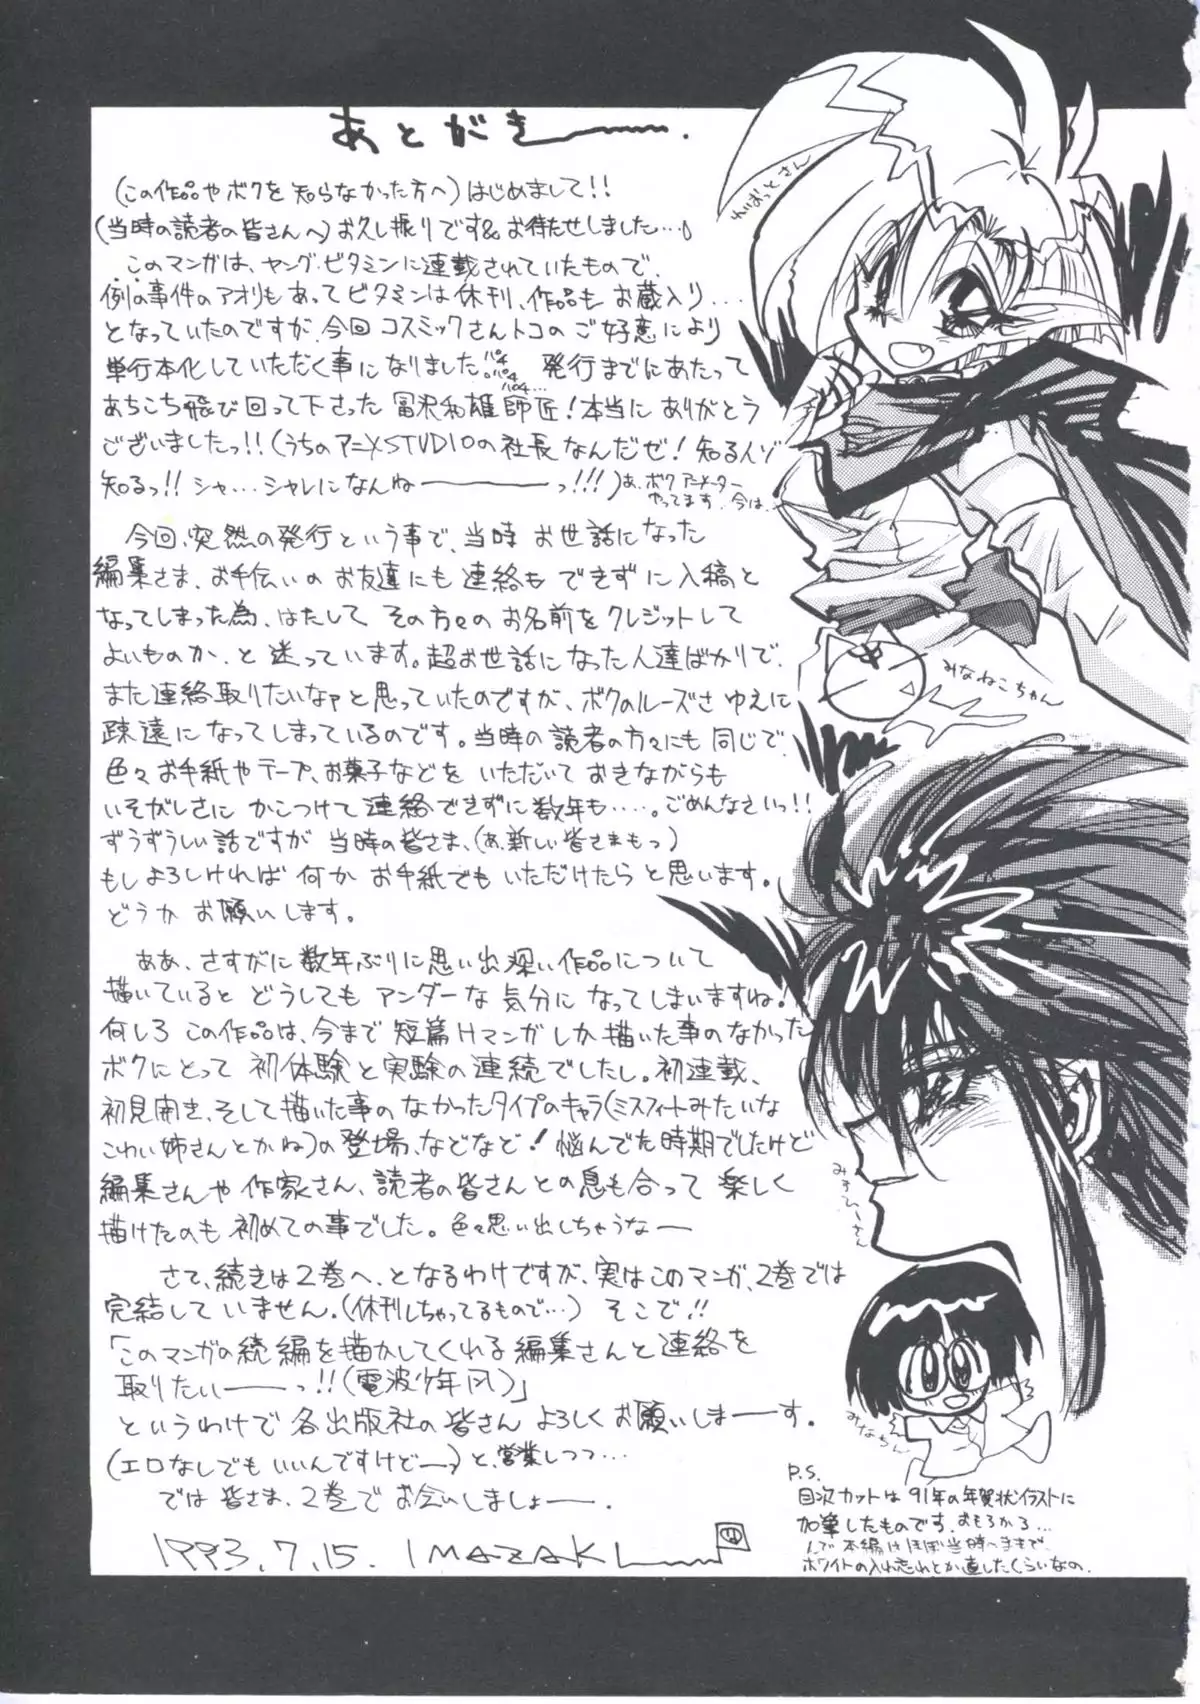 あとがき
(この作品やボクを知らなかった方へ)はじめまして!!
(当時の読者の皆さんへ)お久し振りです&お待たせしました…
このマンガは、ヤング・ビタミンに連載されていたもので、
例の事件のアオリもあってビタミンは休刊、作品もお蔵入り…
となっていたのですが、今回コスミックさんトコのご好意により
単行本化していただく事になりました。パチパチパチ… 発行までにあたって
あちこち飛び回って下さった冨沢和雄師匠!本当にありがとう
ございましたっ!!(うちのアニメSTUDIOの社長なんだぜ!知る人ゾ
知るっ!!シャ…シャレになんねーーーっ!!!)あ、ボクアニメーター
やってます、今は…
今回、突然の発行という事で、当時お世話になった
編集さま、お手伝いのお友達にも連絡もできずに入稿と
なってしまった為、はたしてその方々のお名前をクレジットして
よいものか、と迷っています。超お世話になった人達ばかりで、
また連絡取りたいなァと思っていたのですが、ボクのルーズさゆえに
疎遠になってしまっているのです。当時の読者の方々にも同じで、
色々お手紙やテープ、お菓子などをいただいておきながらも
いそがしさにかこつけて連絡できずに数年も……。ごめんなさいっ!!
ずうずうしい話ですが当時の皆さま、(あ、新しい皆さまもっ)
もしよろしければ何かお手紙でもいただけたらと思います。
どうかお願いします。
ああ、さすがに数年ぶりに思い出深い作品について
描いているとどうしてもアンダーな気分になってしまいますね!
何しろこの作品は、今まで短篇Hマンガしか描いた事のなかった
ボクにとって初体験と実験の連続でしたし。初連載、
初見開き、そして描いた事のなかったタイプのキャラ(ミスフィートみたいな
こわい姉さんとかね)の登場、などなど!悩んでた時期でしたけど
編集さんや作家さん、読者の皆さんとの息も合って楽しく
描けたのも初めての事でした。色々思い出しちゃうなー
さて、続きは2巻へ、となるわけですが、実はこのマンガ、2巻では
完結していません。(休刊しちゃってるもので…)そこで!!
「このマンガの続編を描かしてくれる編集さんと連絡を
取りたいーーっ!!(電波少年風)」
というわけで各出版社の皆さんよろしくお願いしまーす。
(エロなしでもいいんですけどーっ)と、営業しつつ…
では皆さま、2巻でお会いしましょー。
1993.7.15. IMAZAKI
みなねこちゃん
みすふぃーとさん
みなちん
P.S.
目次カットは91年の年賀状イラストに
加筆したものです。おもろかろ…
んで本編はほぼ当時へままで、
ホワイトの入れ忘れとか直したくらいなの。